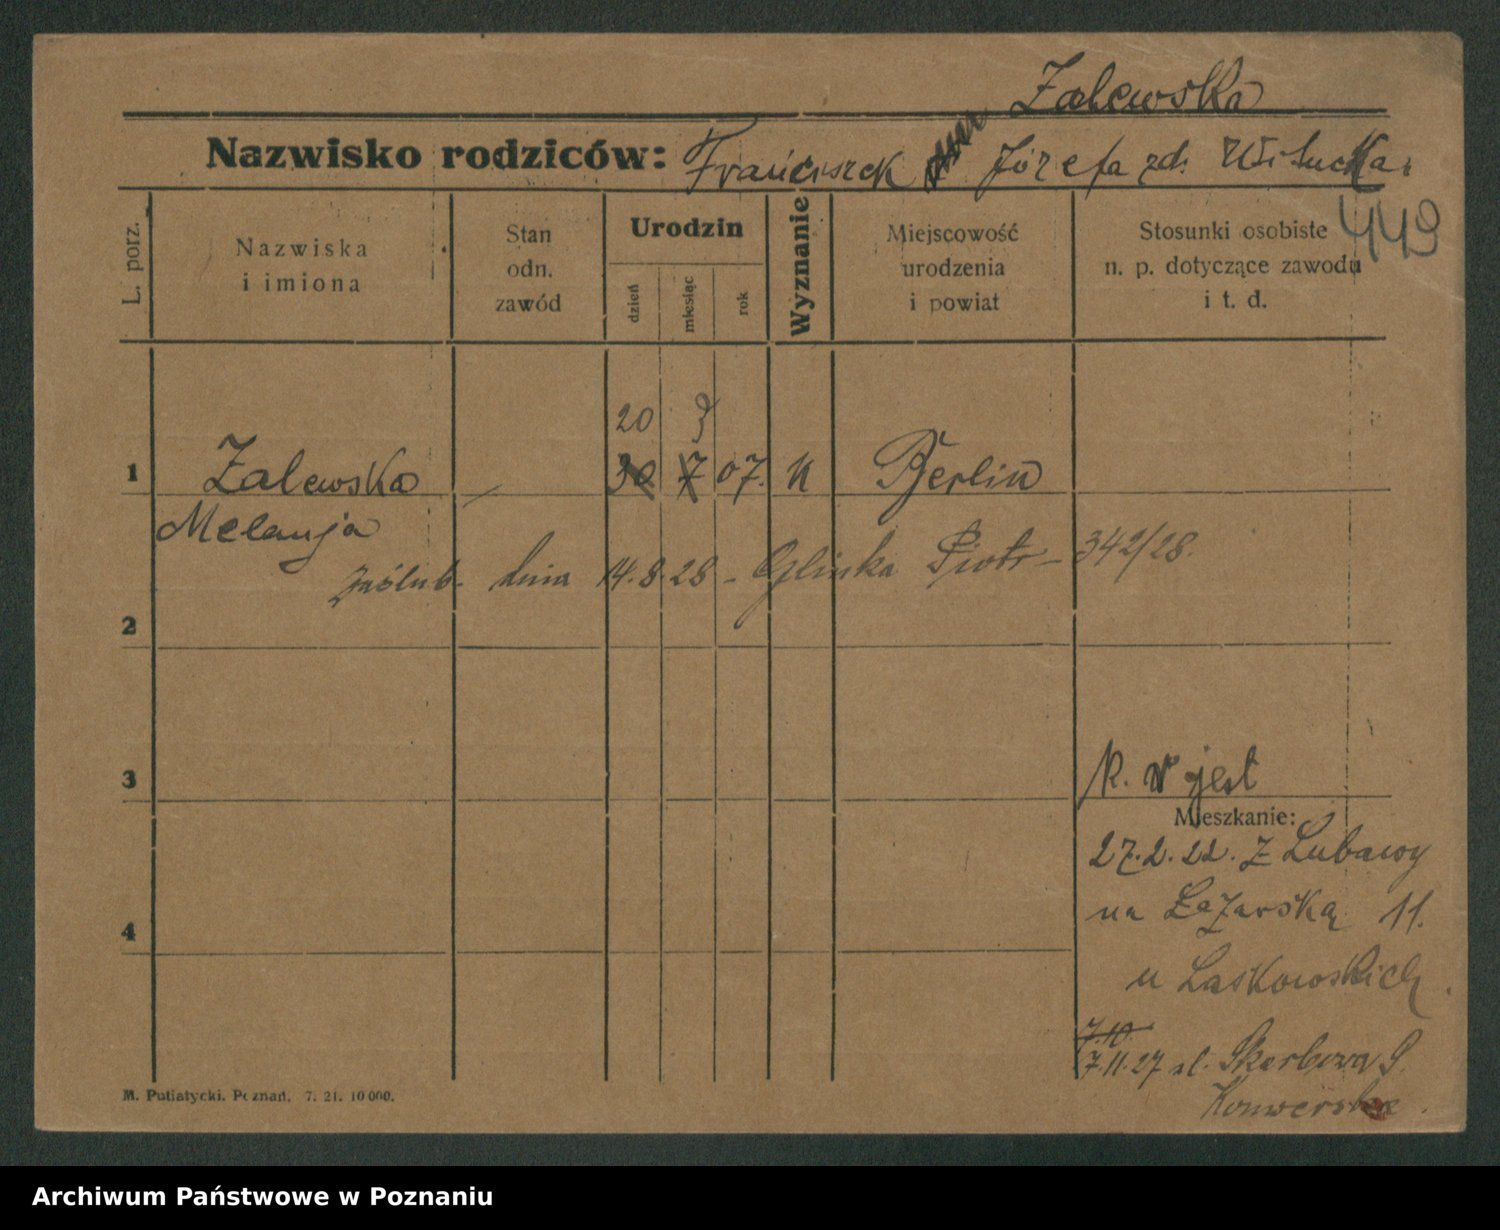 Zalewska
Nazwisko rodziców: Franciszek Józefa zd. Wiłucka
449
L. porz.
Nazwiska
i imiona
Stan
odn.
zawód
Urodzin
dzień
miesiąc
rok
Wyznanie
Miejscowość
urodzenia
i powiat
Stosunki osobiste
n. p. dotyczące zawodu
i t. d.
20 3
1 Zalewska — 30 7 07. K Berlin
Melanja
zaślub. dnia 14.8.28 - Glinka Piotr - 342/28.
2
3
k. w jest
Mieszkanie:
27.2.22. z Lubawy
na Łazarską 11.
4
u Laskowskich.
7.10.
7.11.27 ul. Skarbowa 9.
Konwerska.
M. Putiatycki. Poznań. 7. 21. 10 000.
Archiwum Państwowe w Poznaniu